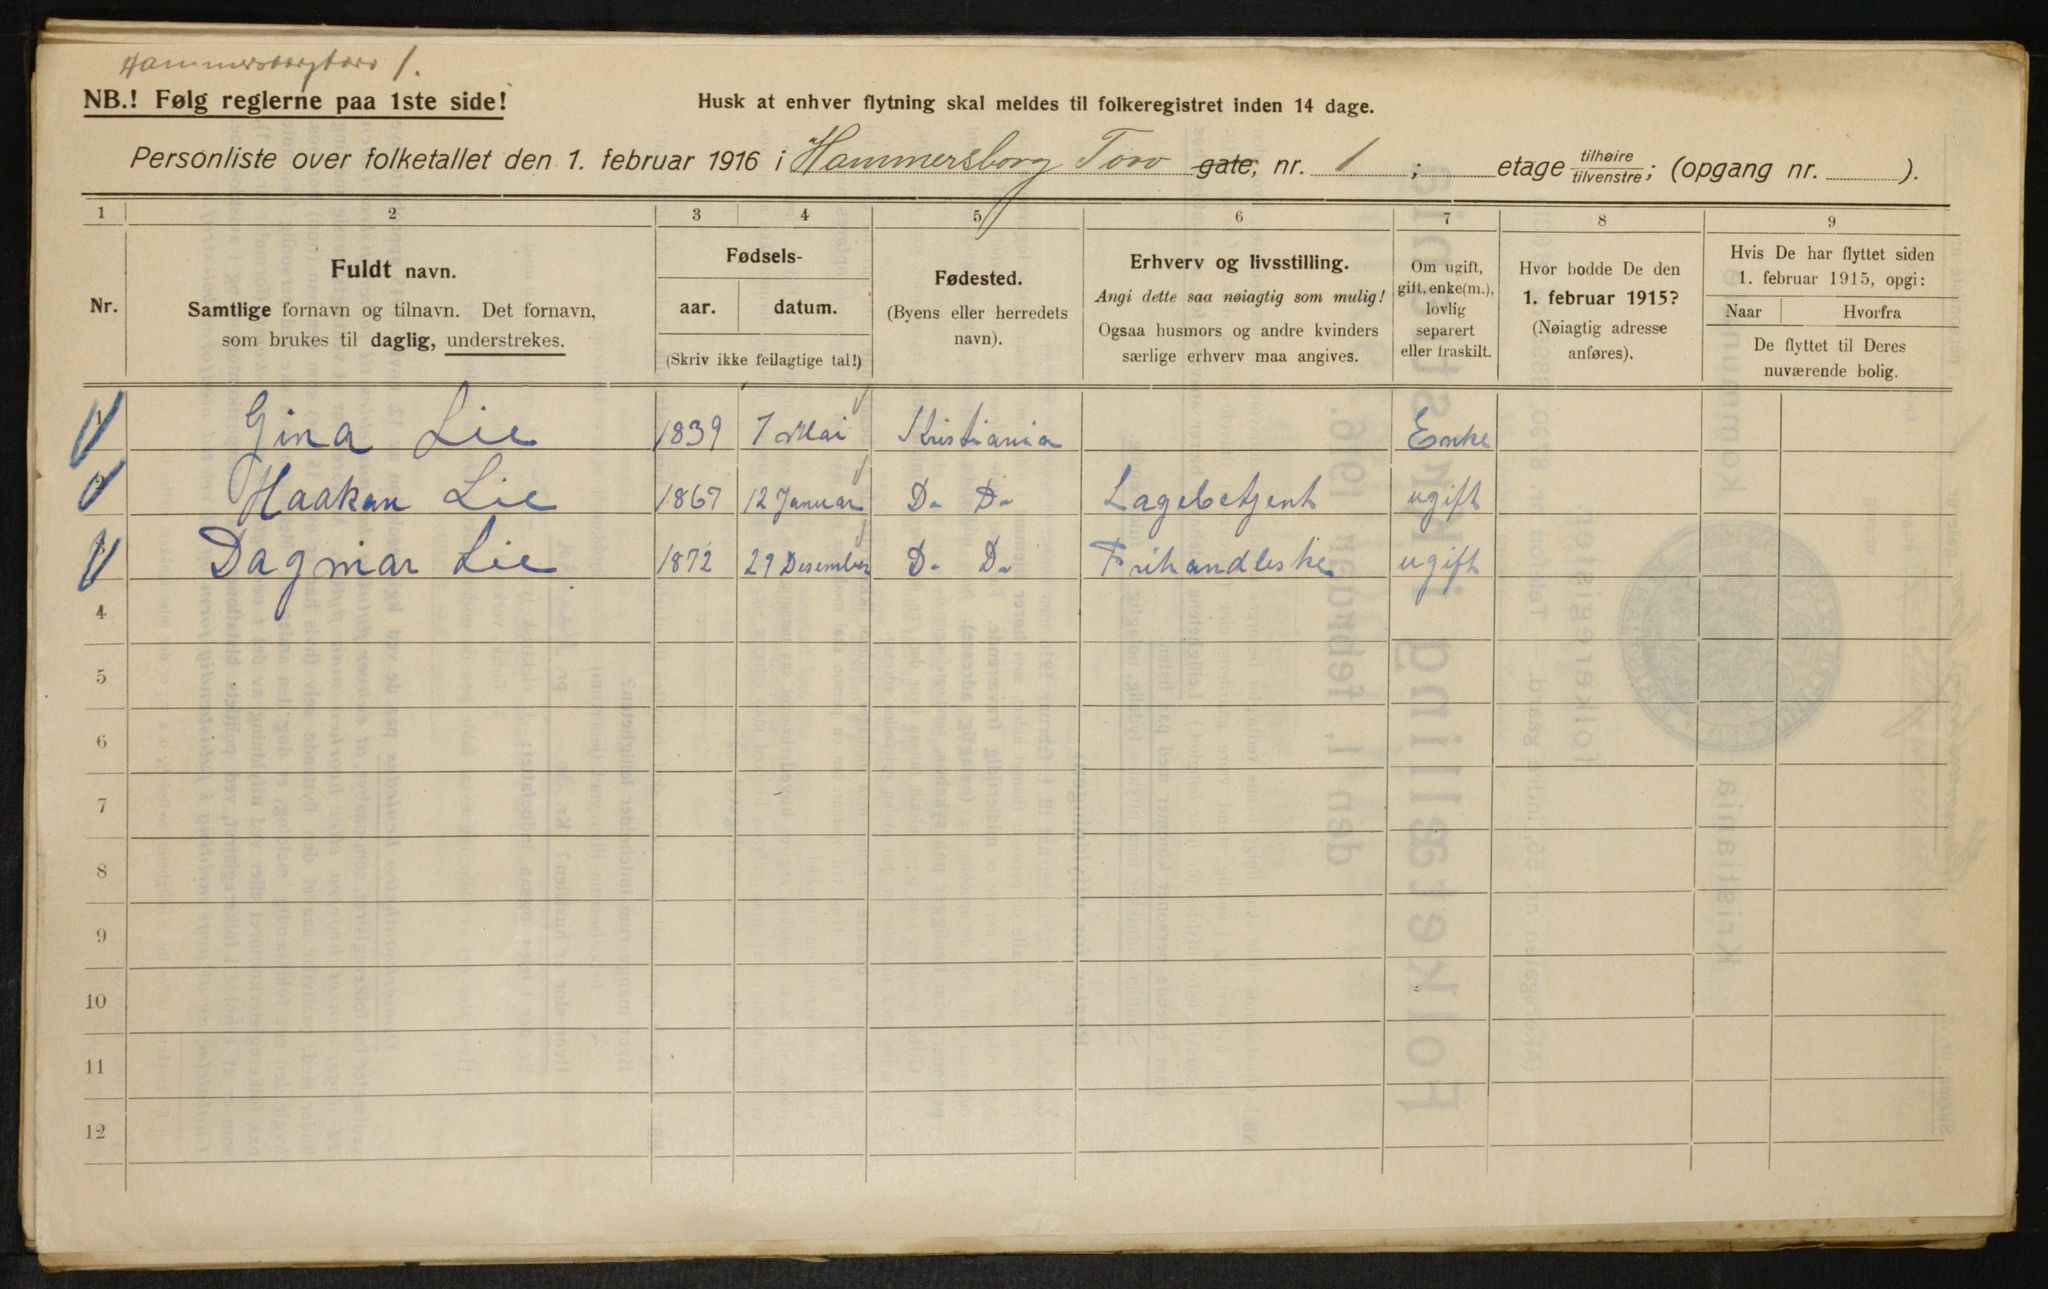 Hammersborgtorv 1.
NB.! Følg reglerne paa 1ste side!
Husk at enhver flytning skal meldes til folkeregistret inden 14 dage.
Personliste over folketallet den 1. februar 1916 i Hammersborg Torv gate, nr. 1; etage tilhøire tilvenstre; (opgang nr. ).
1 2 3 4 5 6 7 8 9
Nr.
Fuldt navn.
Samtlige fornavn og tilnavn. Det fornavn,
som brukes til daglig, understrekes.
Fødsels-
aar. datum.
(Skriv ikke feilagtige tal!)
Fødested.
(Byens eller herredets
navn).
Erhverv og livsstilling.
Angi dette saa nøiagtig som mulig!
Ogsaa husmors og andre kvinders
særlige erhverv maa angives.
Om ugift,
gift, enke(m.),
lovlig
separert
eller fraskilt.
Hvor bodde De den
1. februar 1915?
(Nøiagtig adresse
anføres).
Hvis De har flyttet siden
1. februar 1915, opgi:
Naar Hvorfra
De flyttet til Deres
nuværende bolig.
1 Gina Lie 1839 7 Mai Kristiania Enke
2 Haakan Lie 1867 12 Januar D. D. Lagebetjent ugift
Dagmar Lie 1872 29 Desember D. D. ugift
4
5
6
7
8
9
10
11
12